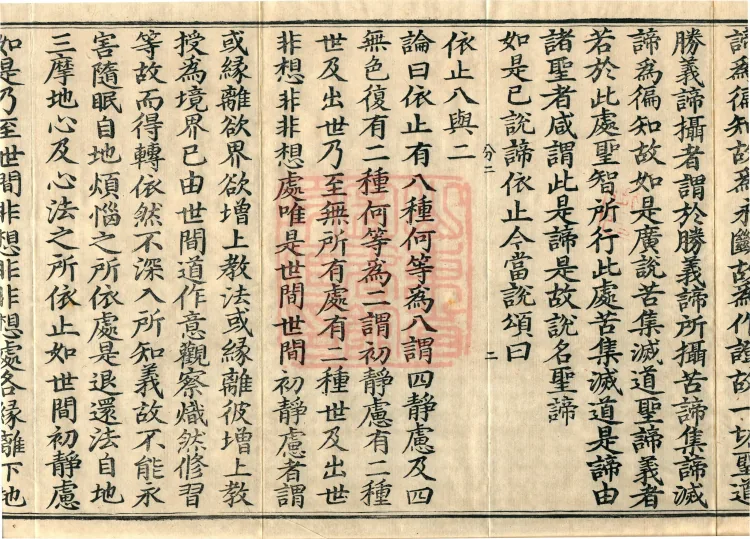 諦為徧知故為永斷故為作證故一切聖道
勝義諦攝者謂於勝義諦所攝苦諦集諦滅
諦為徧知故如是廣說苦集滅道聖諦義者
若於此處聖智所行此處苦集滅道是諦由
諸聖者咸謂此是諦是故說名聖諦
如是已說諦依止今當說頌曰
分二 二
依止八與二
論曰依止有八種何等為八謂四靜慮及四
無色復有二種何等為二謂初靜慮有二種
世及出世乃至無所有處有二種世及出世
非想非非想處唯是世間世間初靜慮者謂
或緣離欲界欲增上教法或緣離彼增上教
授為境界已由世間道作意觀察熾然修習
等故而得轉依然不深入所知義故不能永
害隨眠自地煩惱之所依處是退還法自地
三摩地心及心法之所依止如世間初靜慮
如是乃至世間非想非非想處各緣離下地